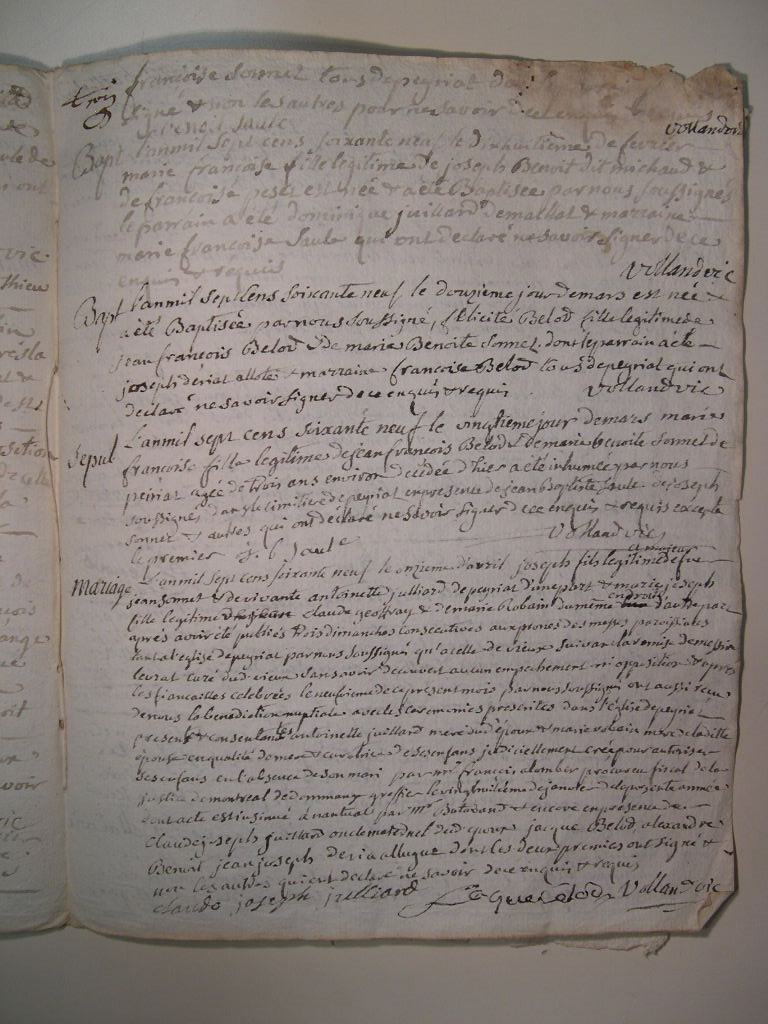 trois françoise sonnet tous de peyriat
signe & non les autres pour ne savoir de ce enquis
benoit saule vollandvic
Bapt l'anmil sept cens soixante neuf le dixhuitieme de fevrier
marie françoise fille legitime de joseph Benoit dit michaud &
de françoise peset est née & a été Baptisée par nous soussignés
le parrain a été dominique juillard de maillat & marraine
marie françoise saule qui ont declaré ne savoir signer de ce
enquis & requis vollandvic
Bapt l'anmil sept cens soixante neuf le douzieme jour de mars est née &
a été Baptisée par nous soussigné, félicité Belod fille legitime de
jean françois Belod & de marie Benoite sonnet. dont le parrain a été
joseph deriat allote & marraine françoise Belod tous de peyriat qui ont
declaré ne savoir signer de ce enquis & requis vollandvic
Sepul l'anmil sept cens soixante neuf le vingtieme jour de mars marie
françoise fille legitime de jean françois Belod & de marie benoite sonnet de
peiriat agée de trois ans environ décédée d'hier a été inhumée par nous
soussignés dans le cimitiere de peyriat en presence de jean baptiste saule de joseph
sonnet & autres qui ont declaré ne savoir signer de ce enquis & requis excepté
le premier J. b saule vollandvic
mariage l'anmil sept cens soixante neuf le onzieme d'avril joseph fils legitime de feu
jean sonnet & de vivante antoinette julliard de peyriat d'une part & marie joseph
fille legitime claude geoffray & de marie Robain du même endroit d'autre part
après avoir été publiés trois dimanches consecutives aux prones des messes paroissiales
tant a l'eglise de peyriat par nous soussignés qu'a celle de vieux suivant la remise de messire
levrat curé dud. vieux sans avoir decouvert aucun empechement ni opposition & après
les fiancailles celebrées le neufvieme de ce present mois par nous soussignés ont aussi reçu
de nous la benediction nuptiale avec les ceremonies prescrites dans l'eglise de peyriat
presents & consentantes antoinette juillard mere dud époux & marie robain mere de ladite
épouse en qualité de mere & curatrice de ses enfans judiciellement créé pour autoriser
ses enfans en l'absence de son mari par mr françois alomber procureur fiscal de la
justice de montreal de dommang greffier le vingt huitieme de janvier de la presente année
dont acte est insinué a nantua par mr Butavand & encore en presence de
claude joseph juillard oncle maternel dud epoux jacque Belod, alexandre
Benoit jean joseph deriat allugue dont les deux premiers ont signé &
non les autres qui ont declaré ne savoir de ce enquis & requis
claude joseph julliard Jacque Belod Vollandvic